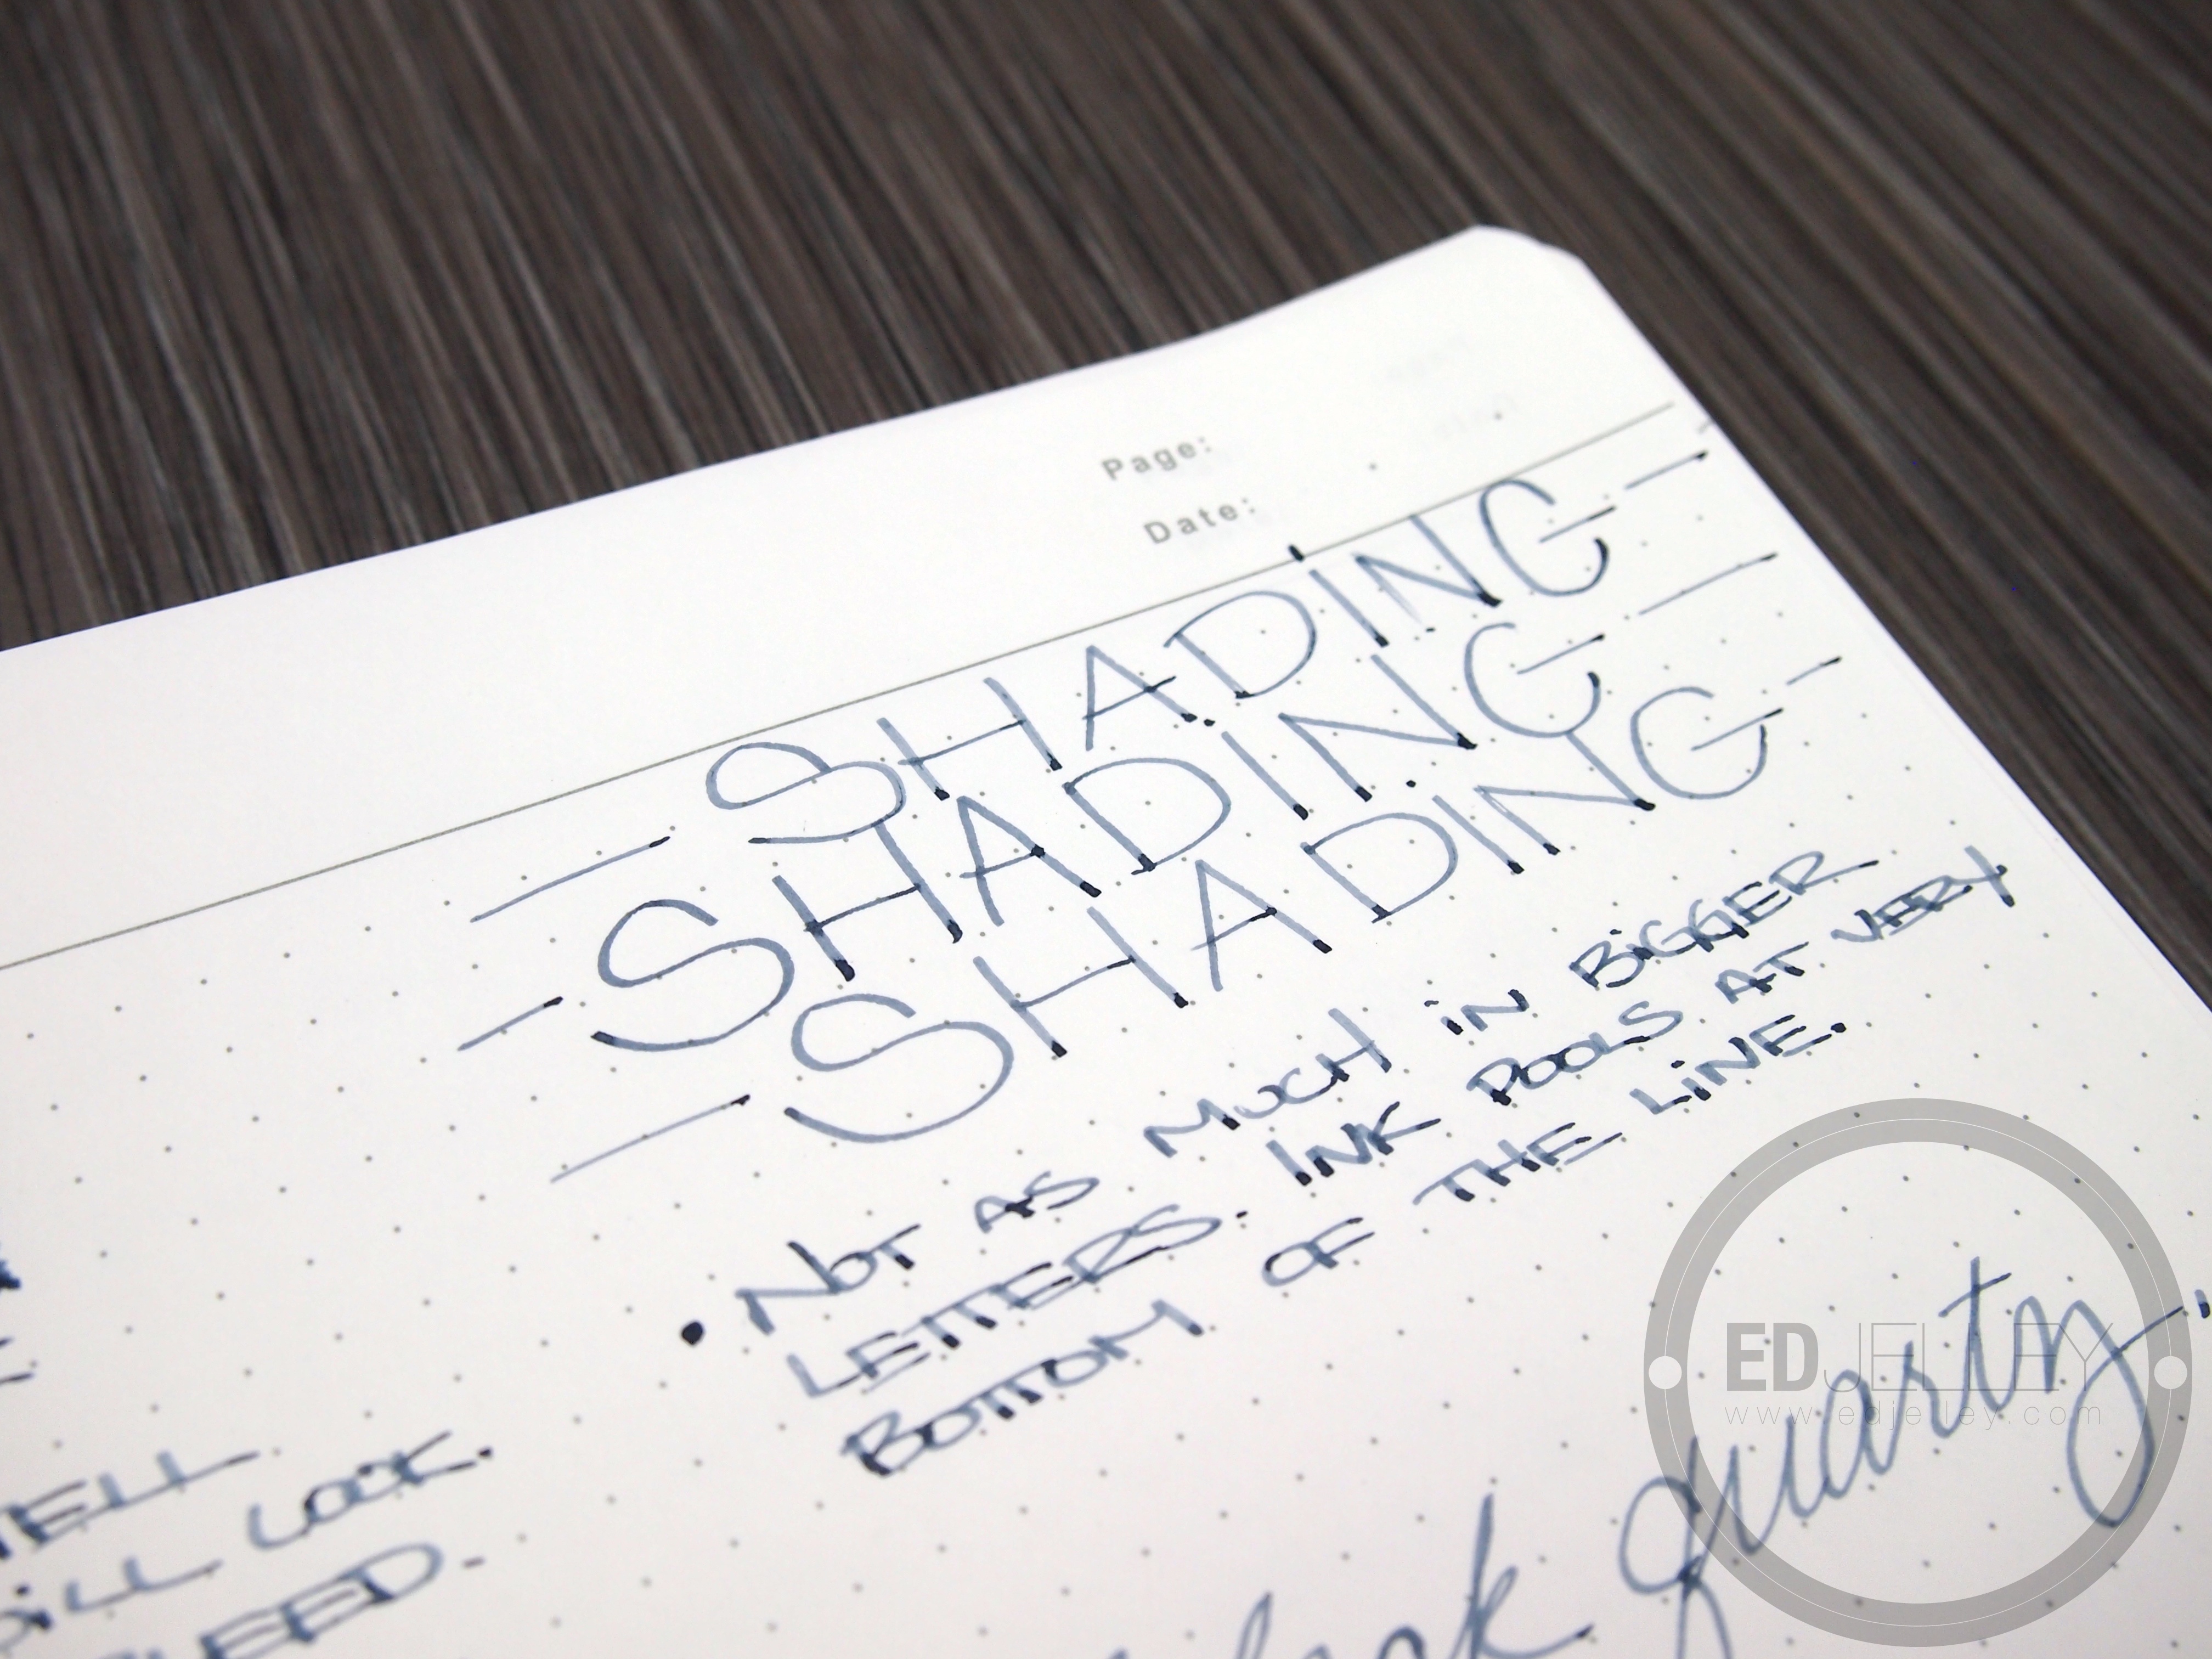 Page:
Date:
— SHADING —
— SHADING —
— SHADING —
• NOT AS MUCH IN BIGGER
LETTERS. INK POOLS AT VERY
BOTTOM OF THE LINE.
LOOK.
quartz,
EDJELLEY
www.edjelley.com